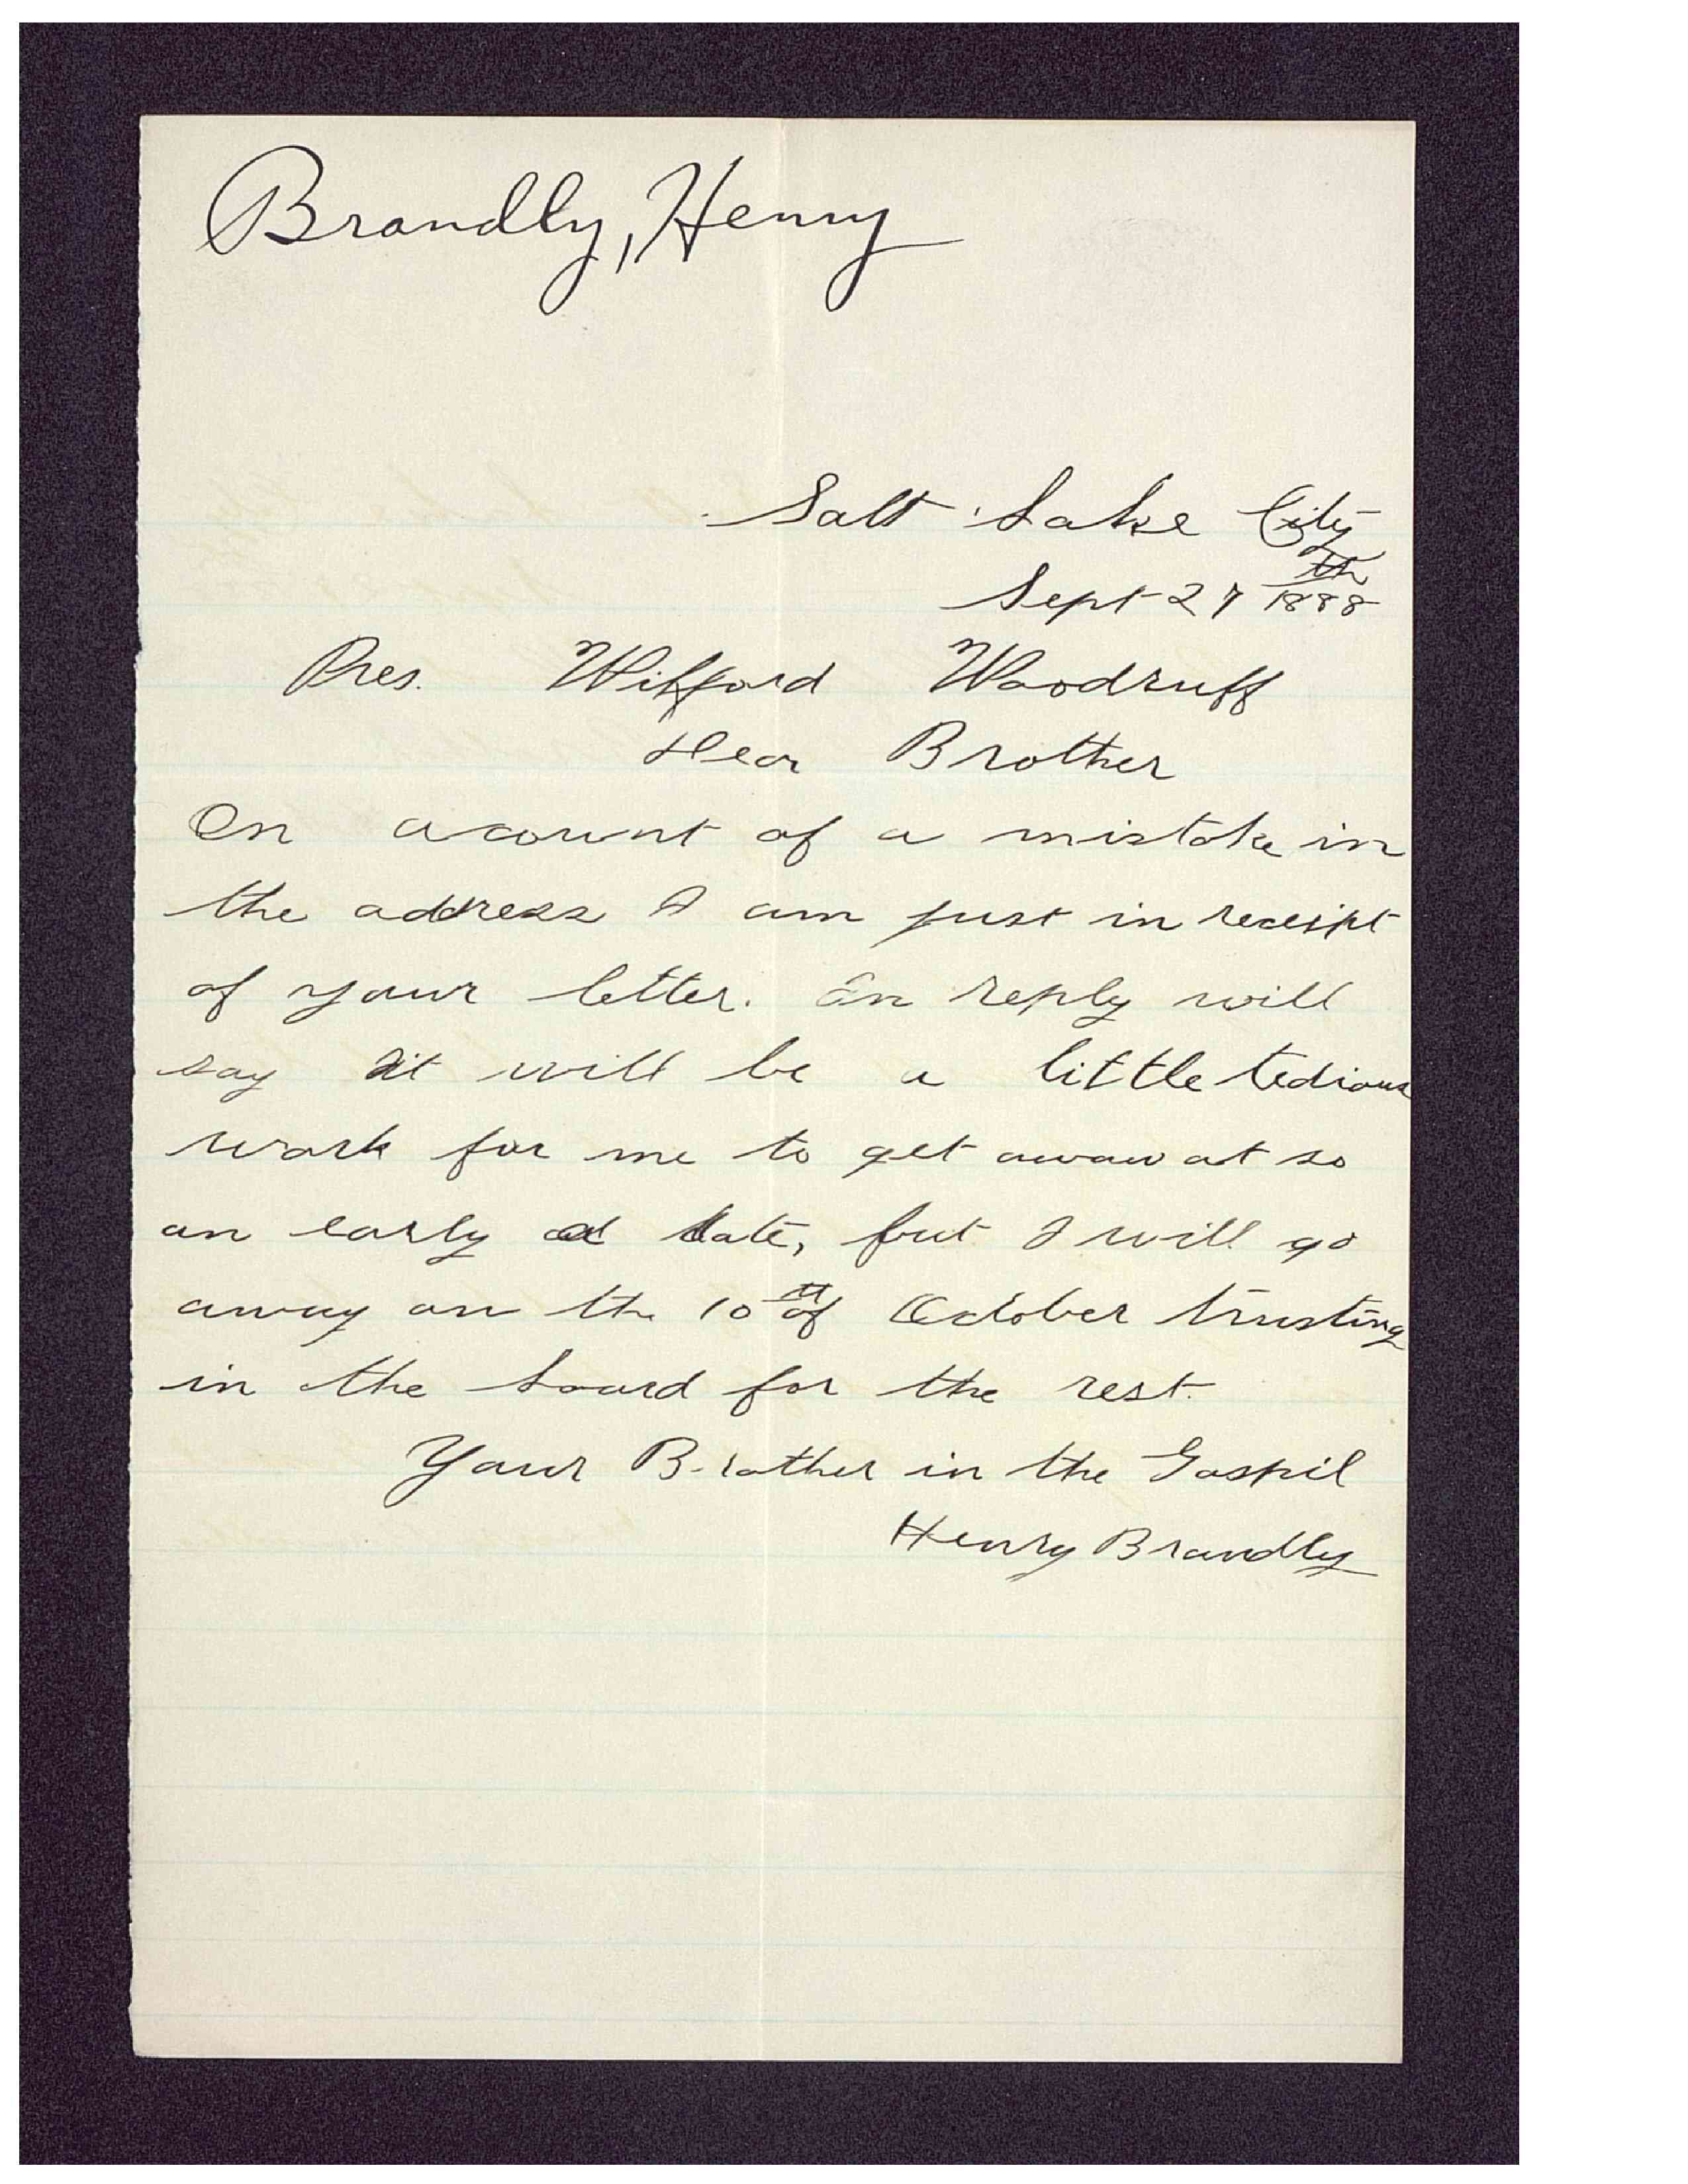 Brandly, Henry
Salt Lake City
Sept 27th 1888
Pres. Wilford Woodruff
Dear Brother
On acount of a mistake in
the address I am just in receipt
of your letter. In reply will
say it will be a little tedious
work for me to get away at so
an early a date, but I will go
away on the 10th of October trusting
in the Lourd for the rest.
Your Brother in the Gospil
Henry Brandly